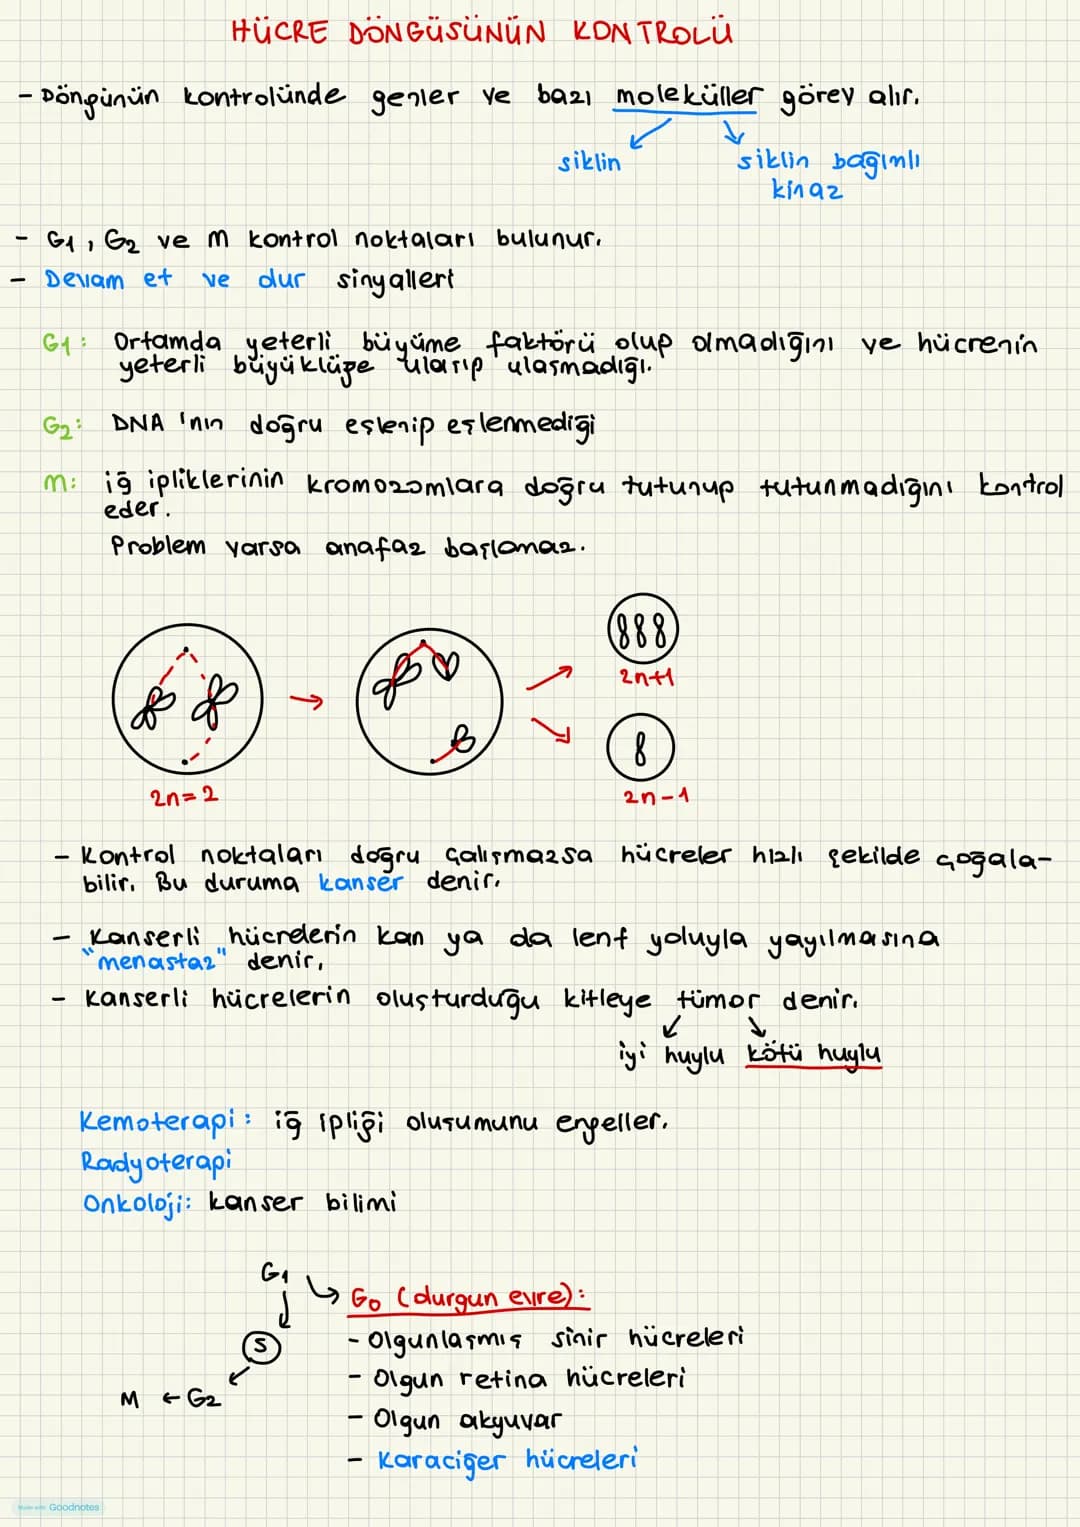 HÜCRE DÖNGÜSÜNÜN KONTROLÜ
- Döngünün kontrolünde genler ve bazı moleküller görev alır.
siklin
siklin bağımlı
kinaz
- G1, G2 ve M kontrol noktaları bulunur.
- Devam et ve dur sinyalleri
G1: Ortamda yeterli büyüme faktörü olup olmadığını ve hücrenin
yeterli büyüklüğe ulaşıp ulaşmadığı.
G2: DNA 'nın doğru eşlenip eşlenmediği
M: iğ ipliklerinin kromozomlara doğru tutunup tutunmadığını kontrol
eder.
Problem varsa anafaz başlamaz.
2n+1
2n=2
2n-1
- Kontrol noktaları doğru çalışmazsa hücreler hızlı şekilde çoğala-
bilir. Bu duruma kanser denir.
- Kanserli hücrelerin kan ya da lenf yoluyla yayılmasına
"menastaz" denir.
- Kanserli hücrelerin oluşturduğu kitleye tümör denir.
iyi huylu kötü huylu
Kemoterapi: iğ ipliği oluşumunu engeller.
Radyoterapi
Onkoloji: kanser bilimi
G1
G0 (durgun evre):
S
- Olgunlaşmış sinir hücreleri
- Olgun retina hücreleri
M ← G2
- Olgun akyuvar
- Karaciğer hücreleri
Made with Goodnotes